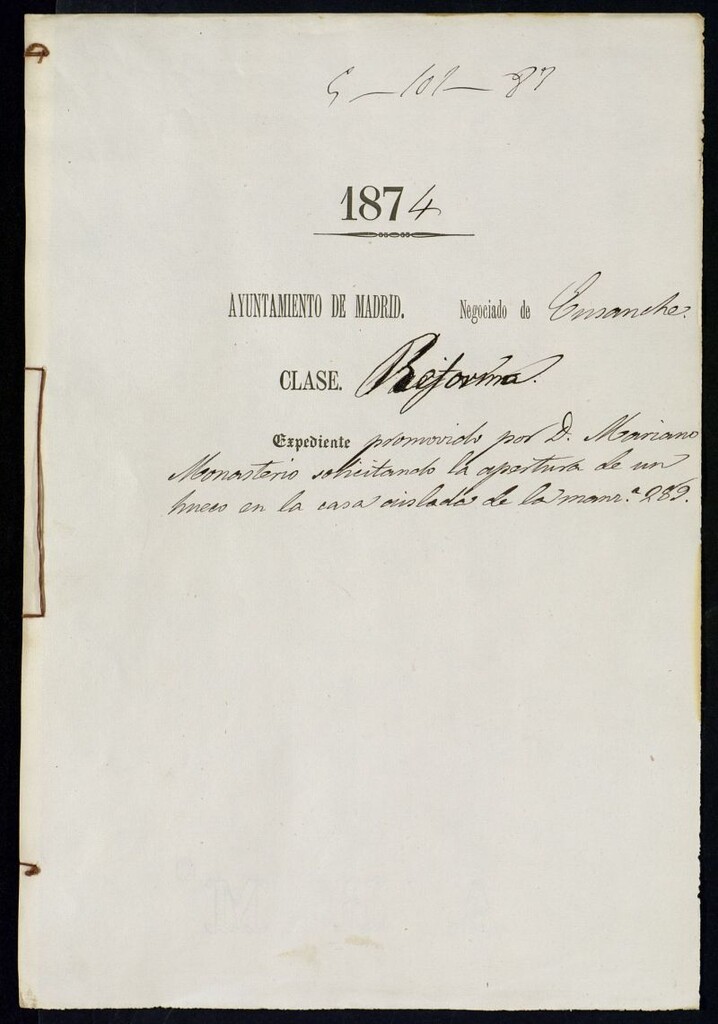 5-101-87
1874
AYUNTAMIENTO DE MADRID. Negociado de Ensanche.
CLASE. Reforma.
Expediente promovido por D. Mariano
Monasterio solicitando la apertura de un
hueco en la casa aislada de la manz.ª 289.